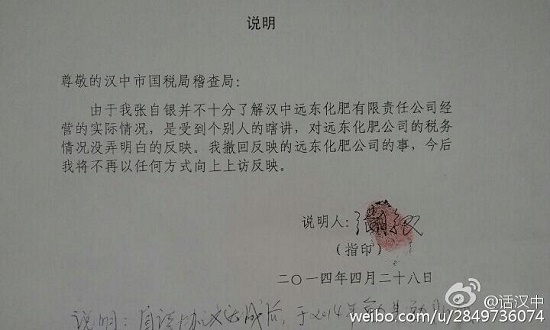 说明
尊敬的汉中市国税局稽查局：
由于我张自银并不十分了解汉中远东化肥有限责任公司经
营的实际情况，是受到个别人的瞎讲，对远东化肥公司的税务
情况没弄明白的反映。我撤回反映的远东化肥公司的事，今后
我将不再以任何方式向上上访反映。
说明人：
（指印）
二〇一四年四月二十八日
说明：
于2014年
@话汉中
weibo.com/u/2849736074